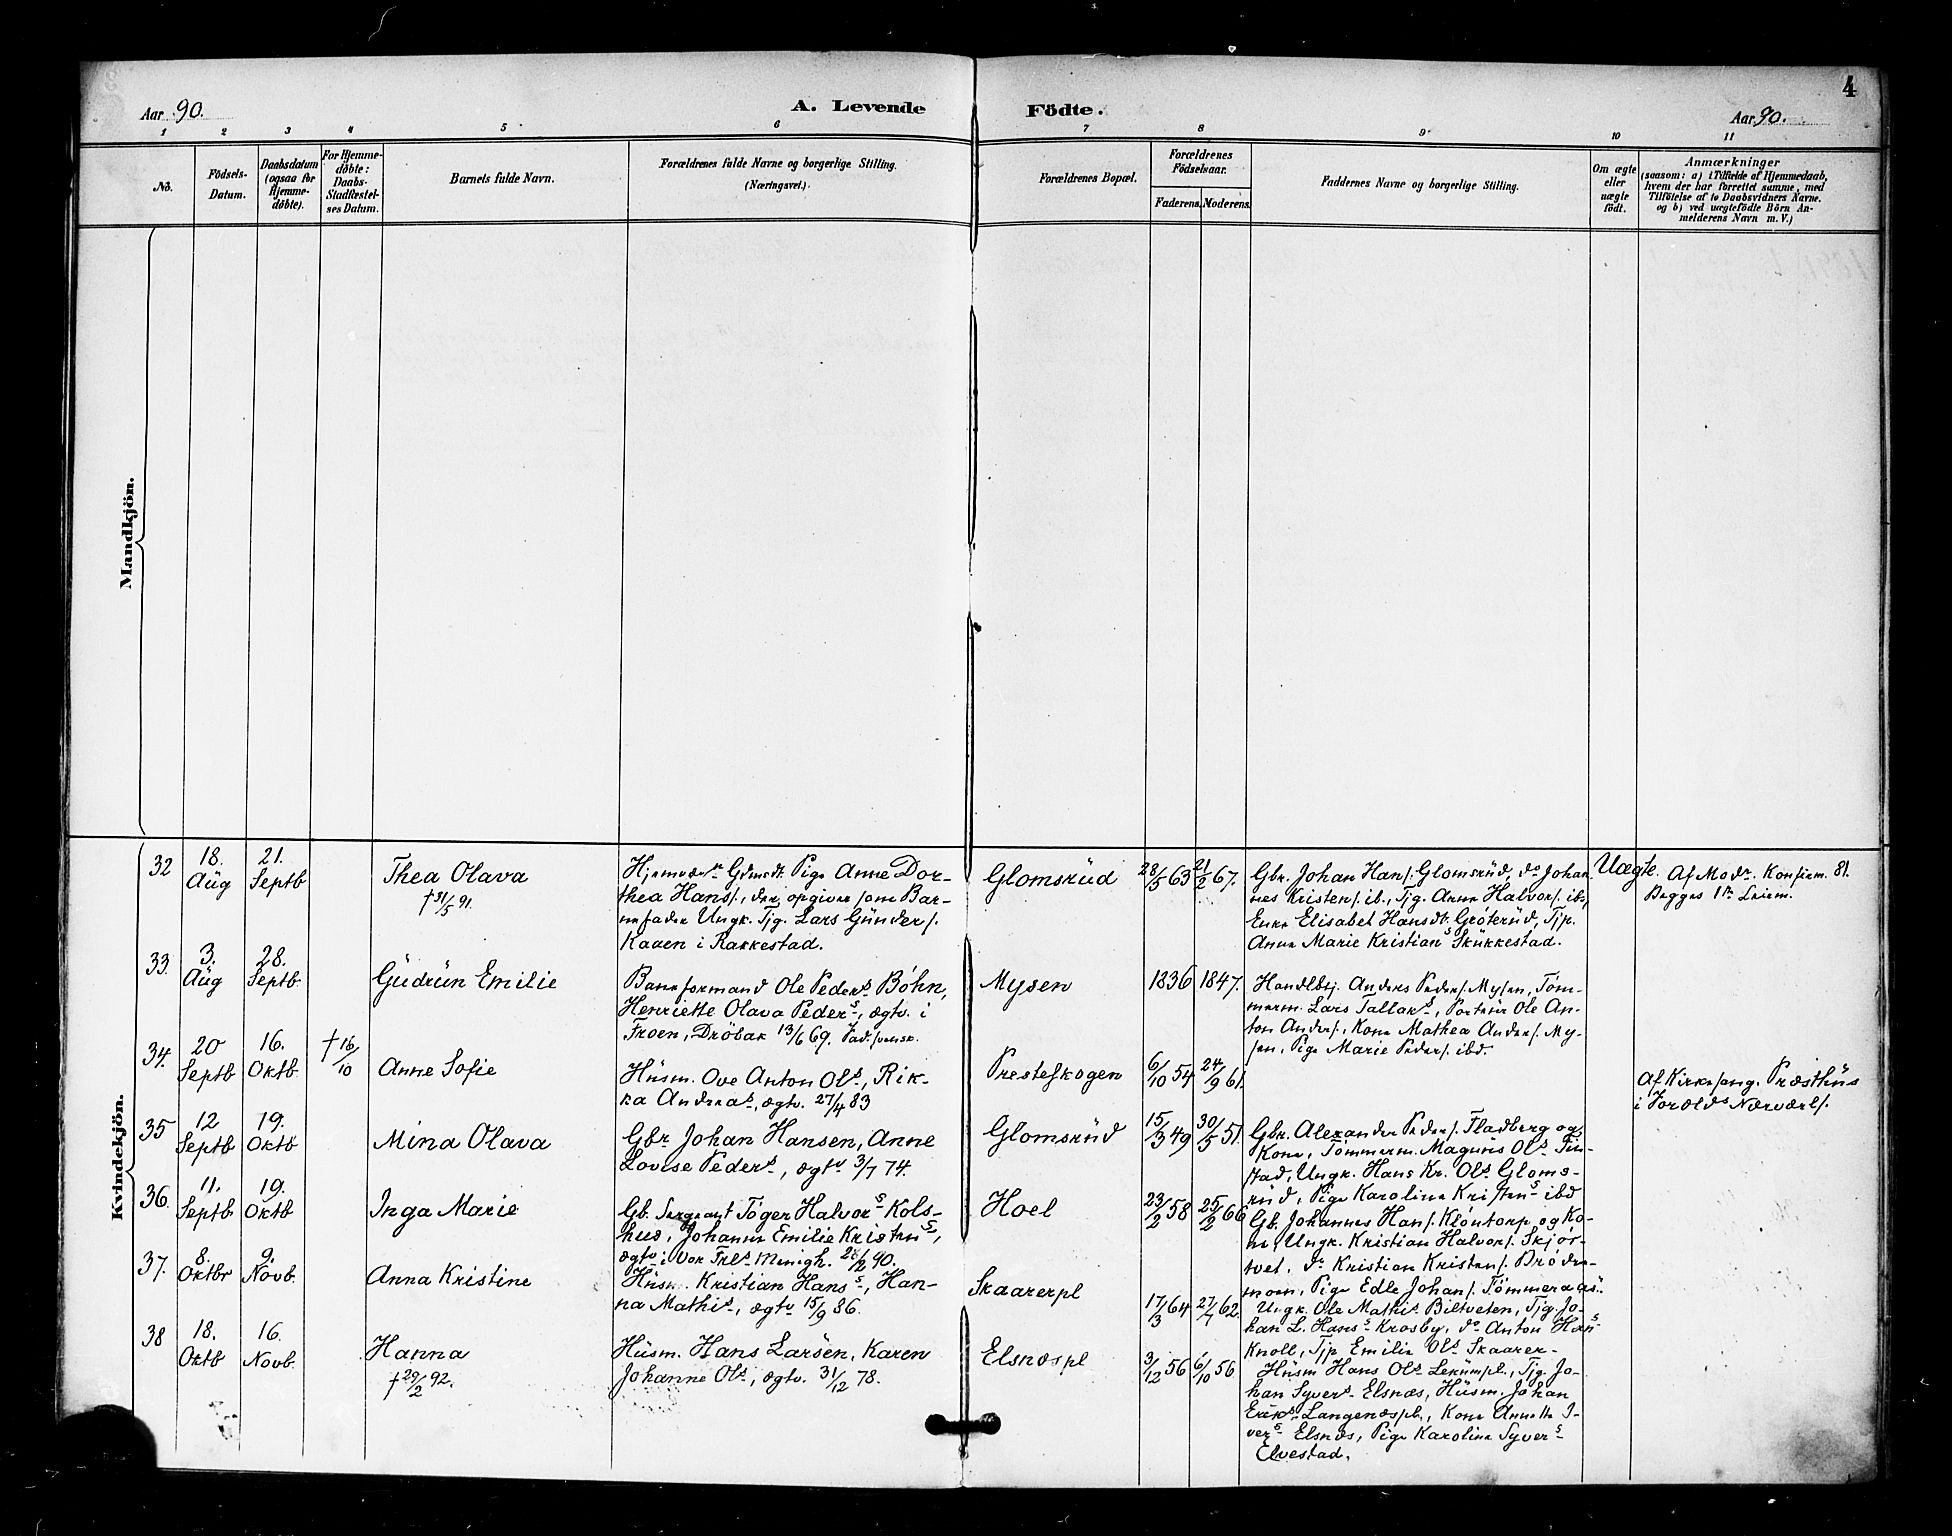 4
Aar 90.
A. Levende Födte.
Aar 90.
1 2 3 4 5 6 7 8 9 10 11
No.
Födsels-
Datum.
Daabsdatum
(ogsaa for
Hjemme-
döbte).
For Hjemme-
döbte:
Daabs-
Stadfæstel-
ses Datum.
Barnets fulde Navn.
Forældrenes fulde Navne og borgerlige Stilling.
(Næringsvei).
Forældrenes Bopæl.
Forældrenes
Födselsaar.
Faderens. Moderens.
Faddernes Navne og borgerlige Stilling.
Om ægte
eller
uægte
födt.
Anmærkninger
(saasom: a) i Tilfælde af Hjemmedaab,
hvem der har forrettet samme, med
Tilföielse af to Daabsvidners Navne.
og b) ved uægtefödte Börn An-
melderens Navn m. V.)
Mandkjön.
Kvindekjön.
32
18.
Aug
21.
Septb
Thea Olava
† 31/5 91.
Pige Anne Dor-
thea Hans/., der opgiver som Bar-
nefader Ungk. Tjg. Lars Günder/.
Kaaen i Rakkestad.
Glomsrüd
28/5 63
21/2 67.
Gbr. Johan Han/. Glomsrüd, do Johan-
nes Kristen/. ib., Tjg. Anna Halvor/. ib.,
Enke Elisabet Hansdt. Gröterüd, Tjp.
Anna Marie Kristians Skükkestad.
Uægte.
Af Modr. Konfirm. 81.
Begges 1ste Leierm.
33.
3.
Aug
28.
Septb.
Güdrün Emilie
Baneformand Ole Peders Böhn,
Henriette Olava Peders, ægtv. i
Froen, Dröbak 13/6 69.
Mysen
1836
1847.
Handlbj. Anders Peder/. Mysen, Töm-
merm. Lars Tallaks, Portör Ole An-
ton Ander/., Kone Mathea Ander/. My-
sen, Pige Marie Peder/. ibd.
34.
20
Septb
16.
Oktb.
† 16/10
Anne Sofie
Hüsm. Ove Anton Ols, Rik-
ka Andreas, ægtv. 27/4 83
Presteskogen
6/10 54
24/9 61.
Af Kirkesang. Præsthüs
i Sorolds Nærværl/.
35
12
Septb
19.
Oktb
Mina Olava
Gbr Johan Hansen, Anne
Lovise Peders, ægtv 3/7 74.
Glomsrüd
15/3 49
30/5 51.
Gbr. Alexander Peder/. Fladberg og
Kone, Tömmerm. Magnüs Ols Fin-
stad, Ungk. Hans Kr. Ols Gloms-
rüd, Pige Karoline Kristens ibd
36.
11.
Septb
19.
Oktb
Inga Marie
Gb. Sergeant Töger Halvors Kols-
hus, Johanne Emilie Kristens,
ægtv. i Vor Frels Menigh. 23/2 90.
Hoel
23/2 58
25/2 66
Gb. Johannes Han/. Klöntorp og Ko-
ne, Ungk. Kristian Halvor/. Skjör-
tvet, do Kristian Kristen/. Bröder-
moen, Pige Edle Johan/. Tömmeraas.
37.
8.
Oktbr
9.
Novb.
Anna Kristine
Hüsm. Kristian Hans, Han-
na Mathis, ægtv 15/9 86.
Skaarerpl
17/3 64
27/7 62.
Ungk. Ole Mathis Biltveten, Tjg. Jo-
han L. Hans Krosby, do Anton Hans
Knoll, Tjp Emilie Ols Skaarer-
38
18.
Oktb
16.
Novb.
Hanna
† 29/2 92.
Hüsm. Hans Larsen, Karen
Johanne Ols, ægtv. 31/12 78.
Elsnæspl
3/12 56
6/10 56
Hüsm Hans Ols Lekümpl., Tjg. Jo-
han Syvers Elsnæs, Hüsm. Johan
Eriks Langenæspl., Kone Annette I-
vers Elsnæs, Pige Karoline Syvers
Elvestad.